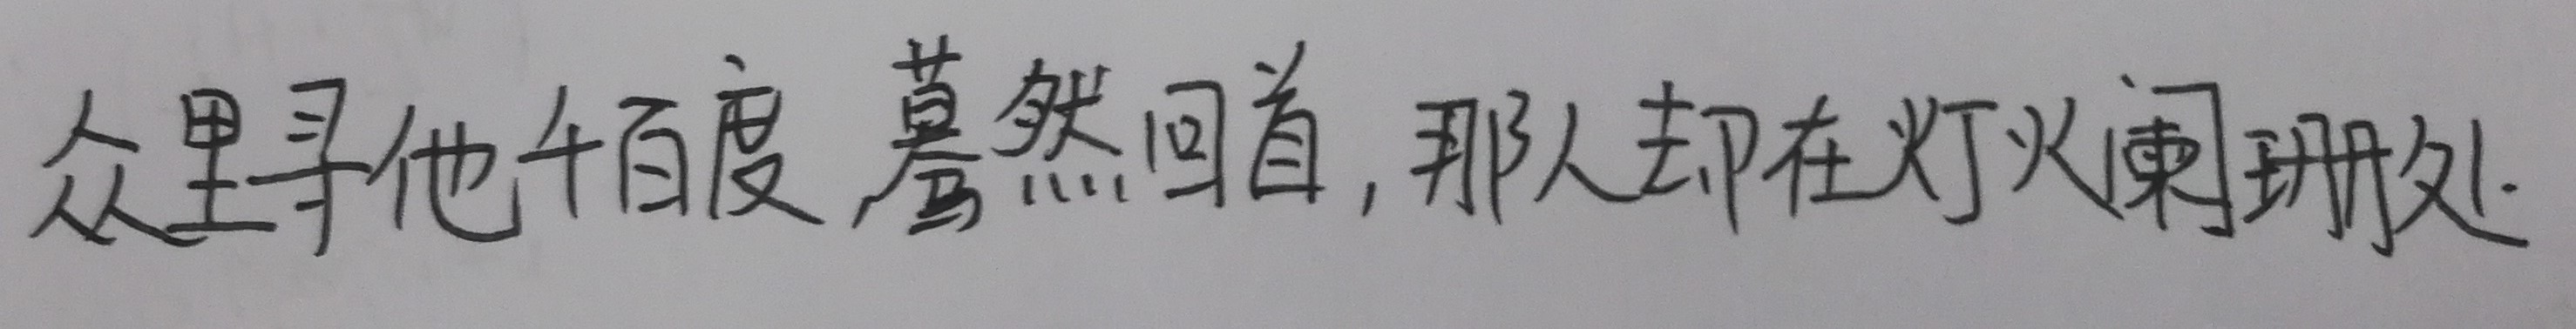 众里寻他千百度,蓦然回首,那人却在灯火阑珊处.